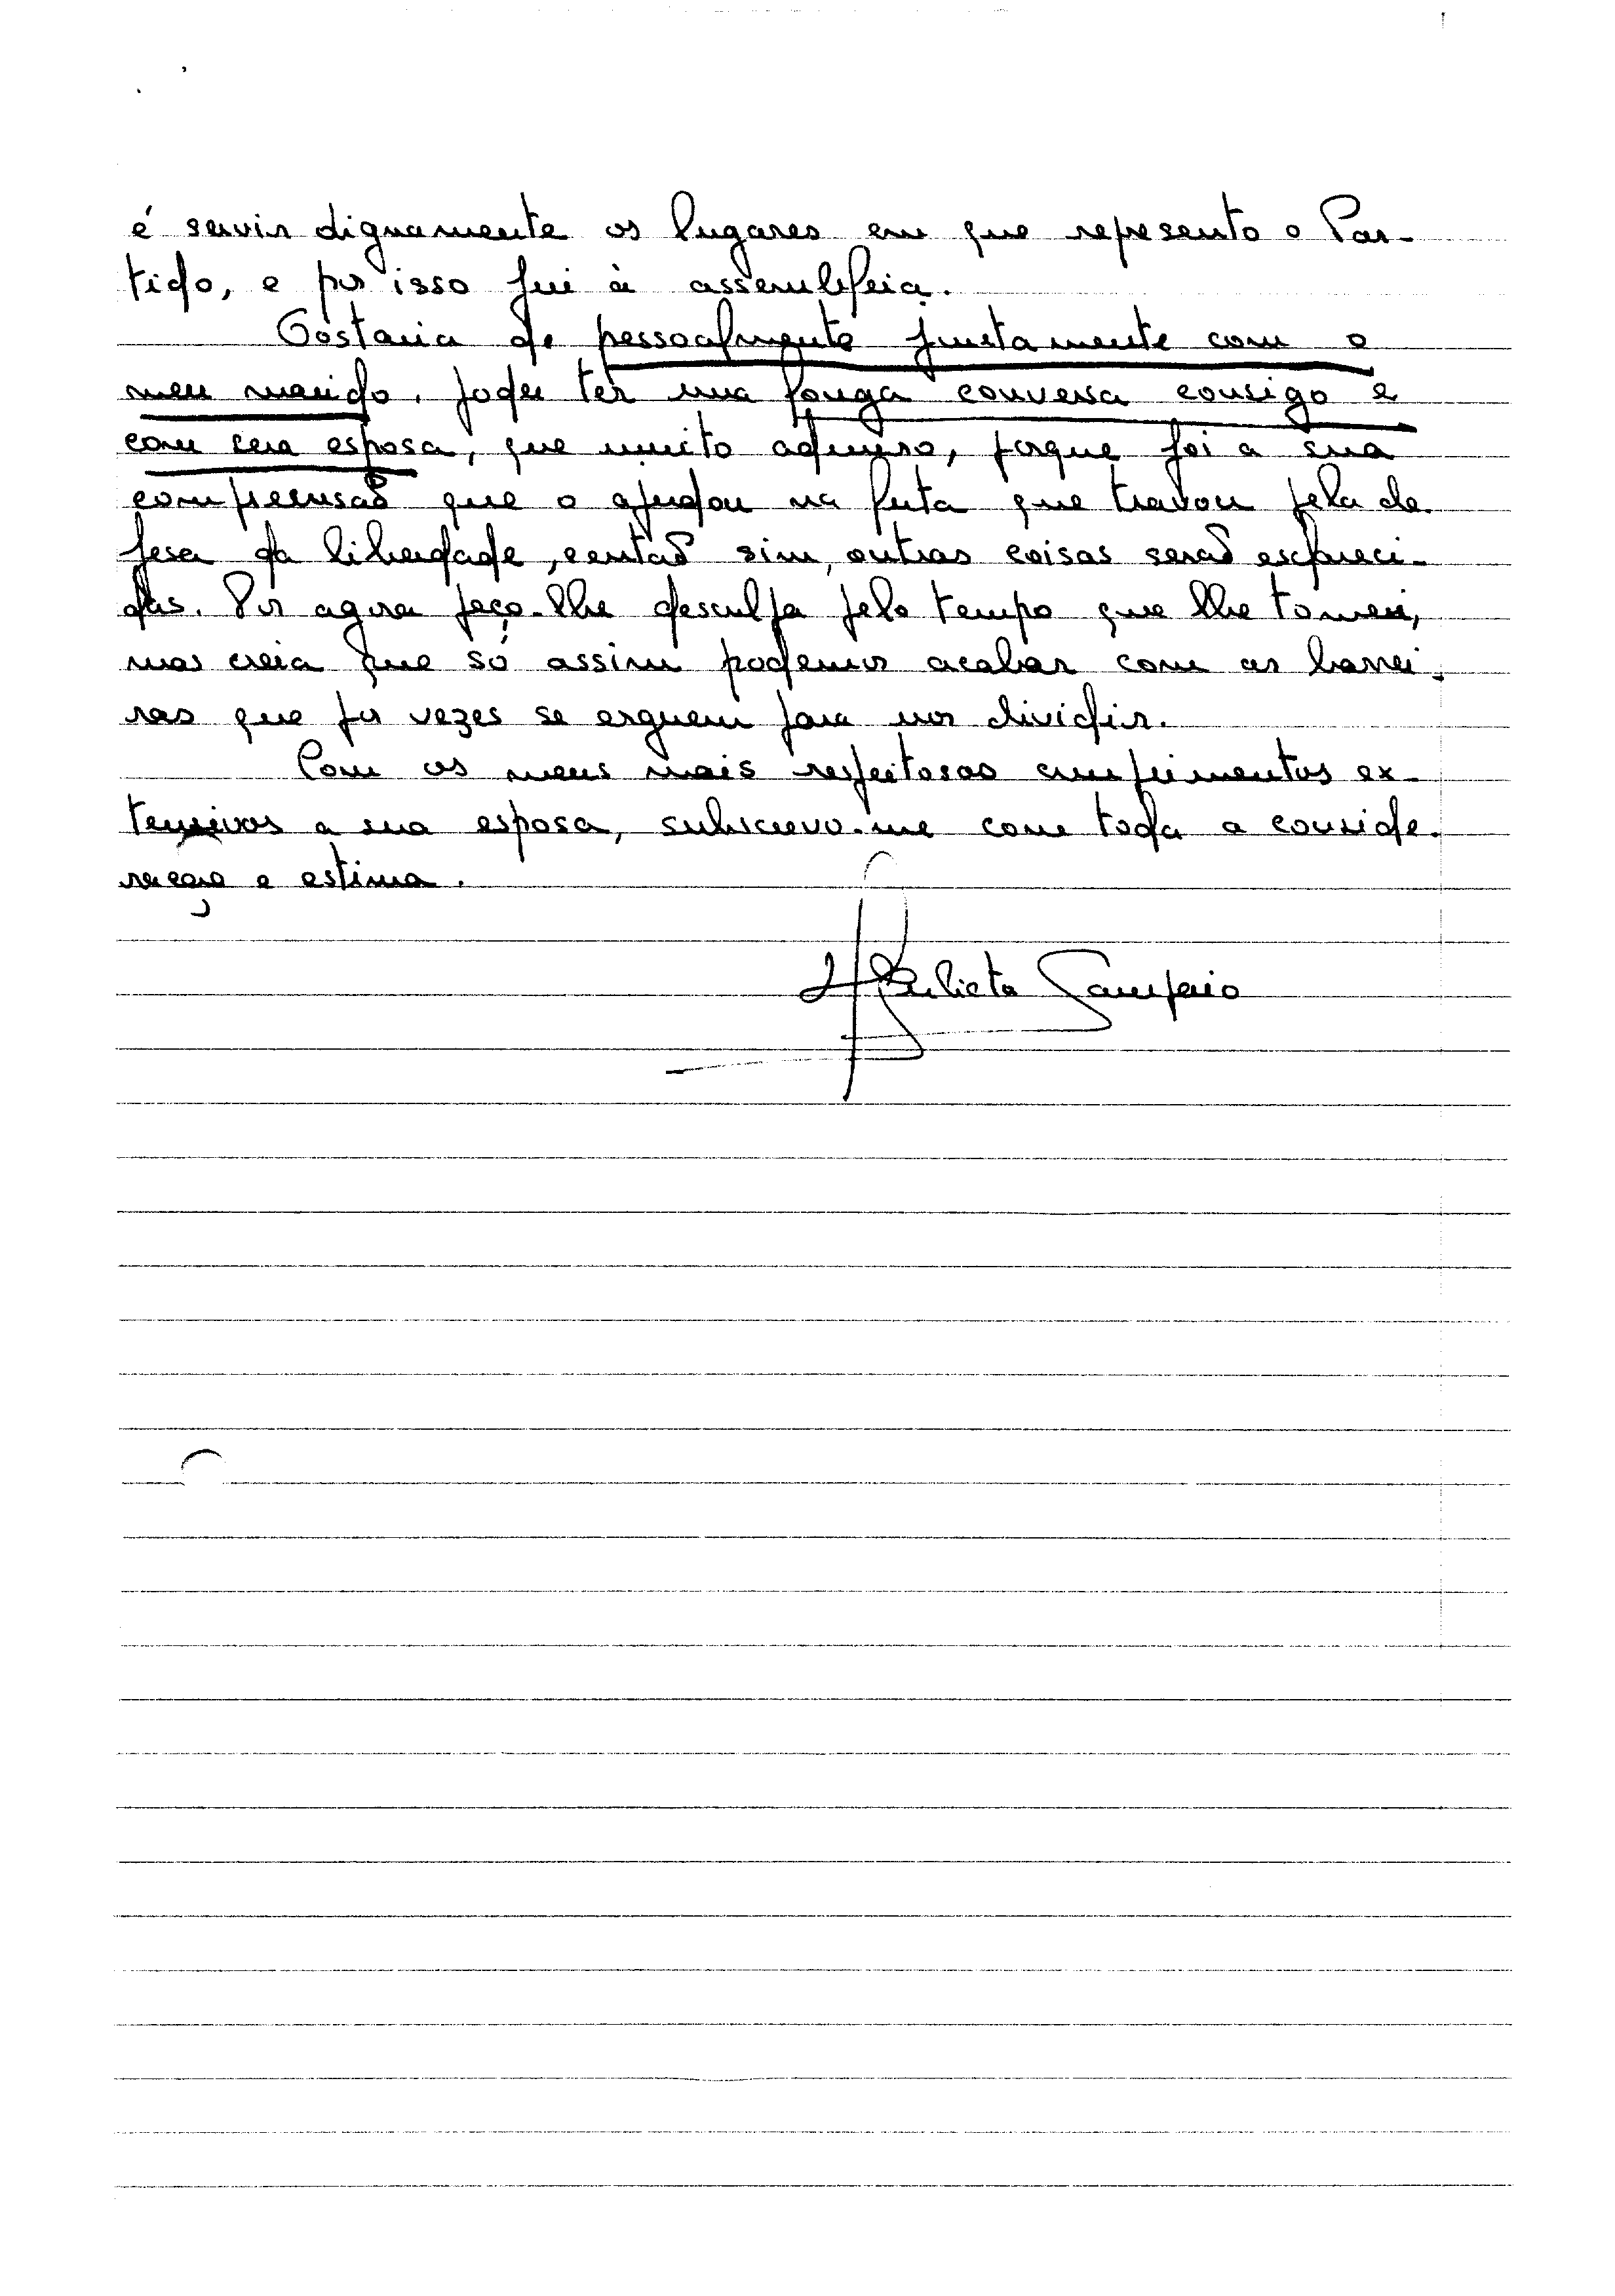 é servir dignamente os lugares em que represento o Par-
tido, e por isso fui à assembleia.
Gostaria de pessoalmente juntamente com o
meu marido, poder ter uma longa conversa consigo e
com sua esposa, que muito admiro, porque foi a sua
compreensão que o ajudou na luta que travou pela de-
fesa da liberdade, então sim, outras coisas serão esclareci-
das. Por agora peço-lhe desculpa pelo tempo que lhe tomei,
mas creia que só assim podemos acabar com as barrei-
ras que por vezes se erguem para nos dividir.
Com os meus mais respeitosos cumprimentos ex-
tensivos a sua esposa, subscrevo-me com toda a conside-
ração e estima.
Julieta Sampaio